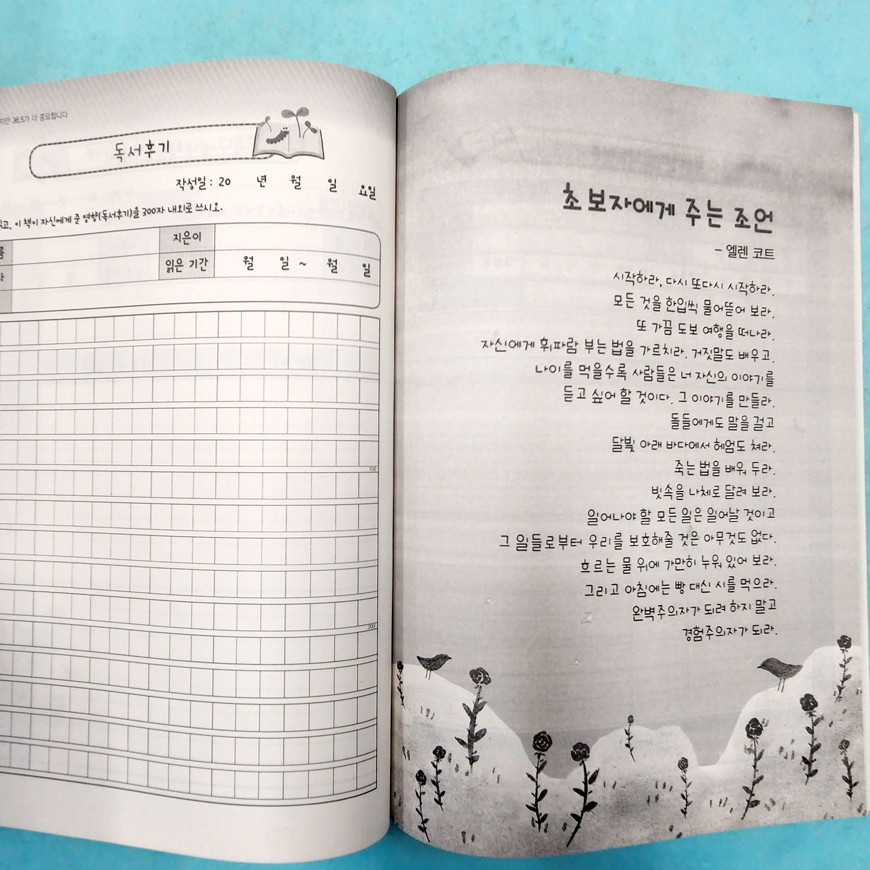 지만 36.5가 더 중요합니다
독서후기
작성일 : 20 년 월 일 요일
이 책이 자신에게 준 영향(독서후기)을 300자 내외로 쓰시오.
지은이
읽은 기간 월 일 ~ 월 일
100
200
초보자에게 주는 조언
- 엘렌 코트
시작하라, 다시 또다시 시작하라.
모든 것을 한입씩 물어뜯어 보라.
또 가끔 도보 여행을 떠나라.
자신에게 휘파람 부는 법을 가르치라. 거짓말도 배우고.
나이를 먹을수록 사람들은 너 자신의 이야기를
듣고 싶어 할 것이다. 그 이야기를 만들라.
돌들에게도 말을 걸고
달빛 아래 바다에서 헤엄도 쳐라.
죽는 법을 배워 두라.
빗속을 나체로 달려 보라.
일어나야 할 모든 일은 일어날 것이고
그 일들로부터 우리를 보호해줄 것은 아무것도 없다.
흐르는 물 위에 가만히 누워 있어 보라.
그리고 아침에는 빵 대신 시를 먹으라.
완벽주의자가 되려 하지 말고
경험주의자가 되라.